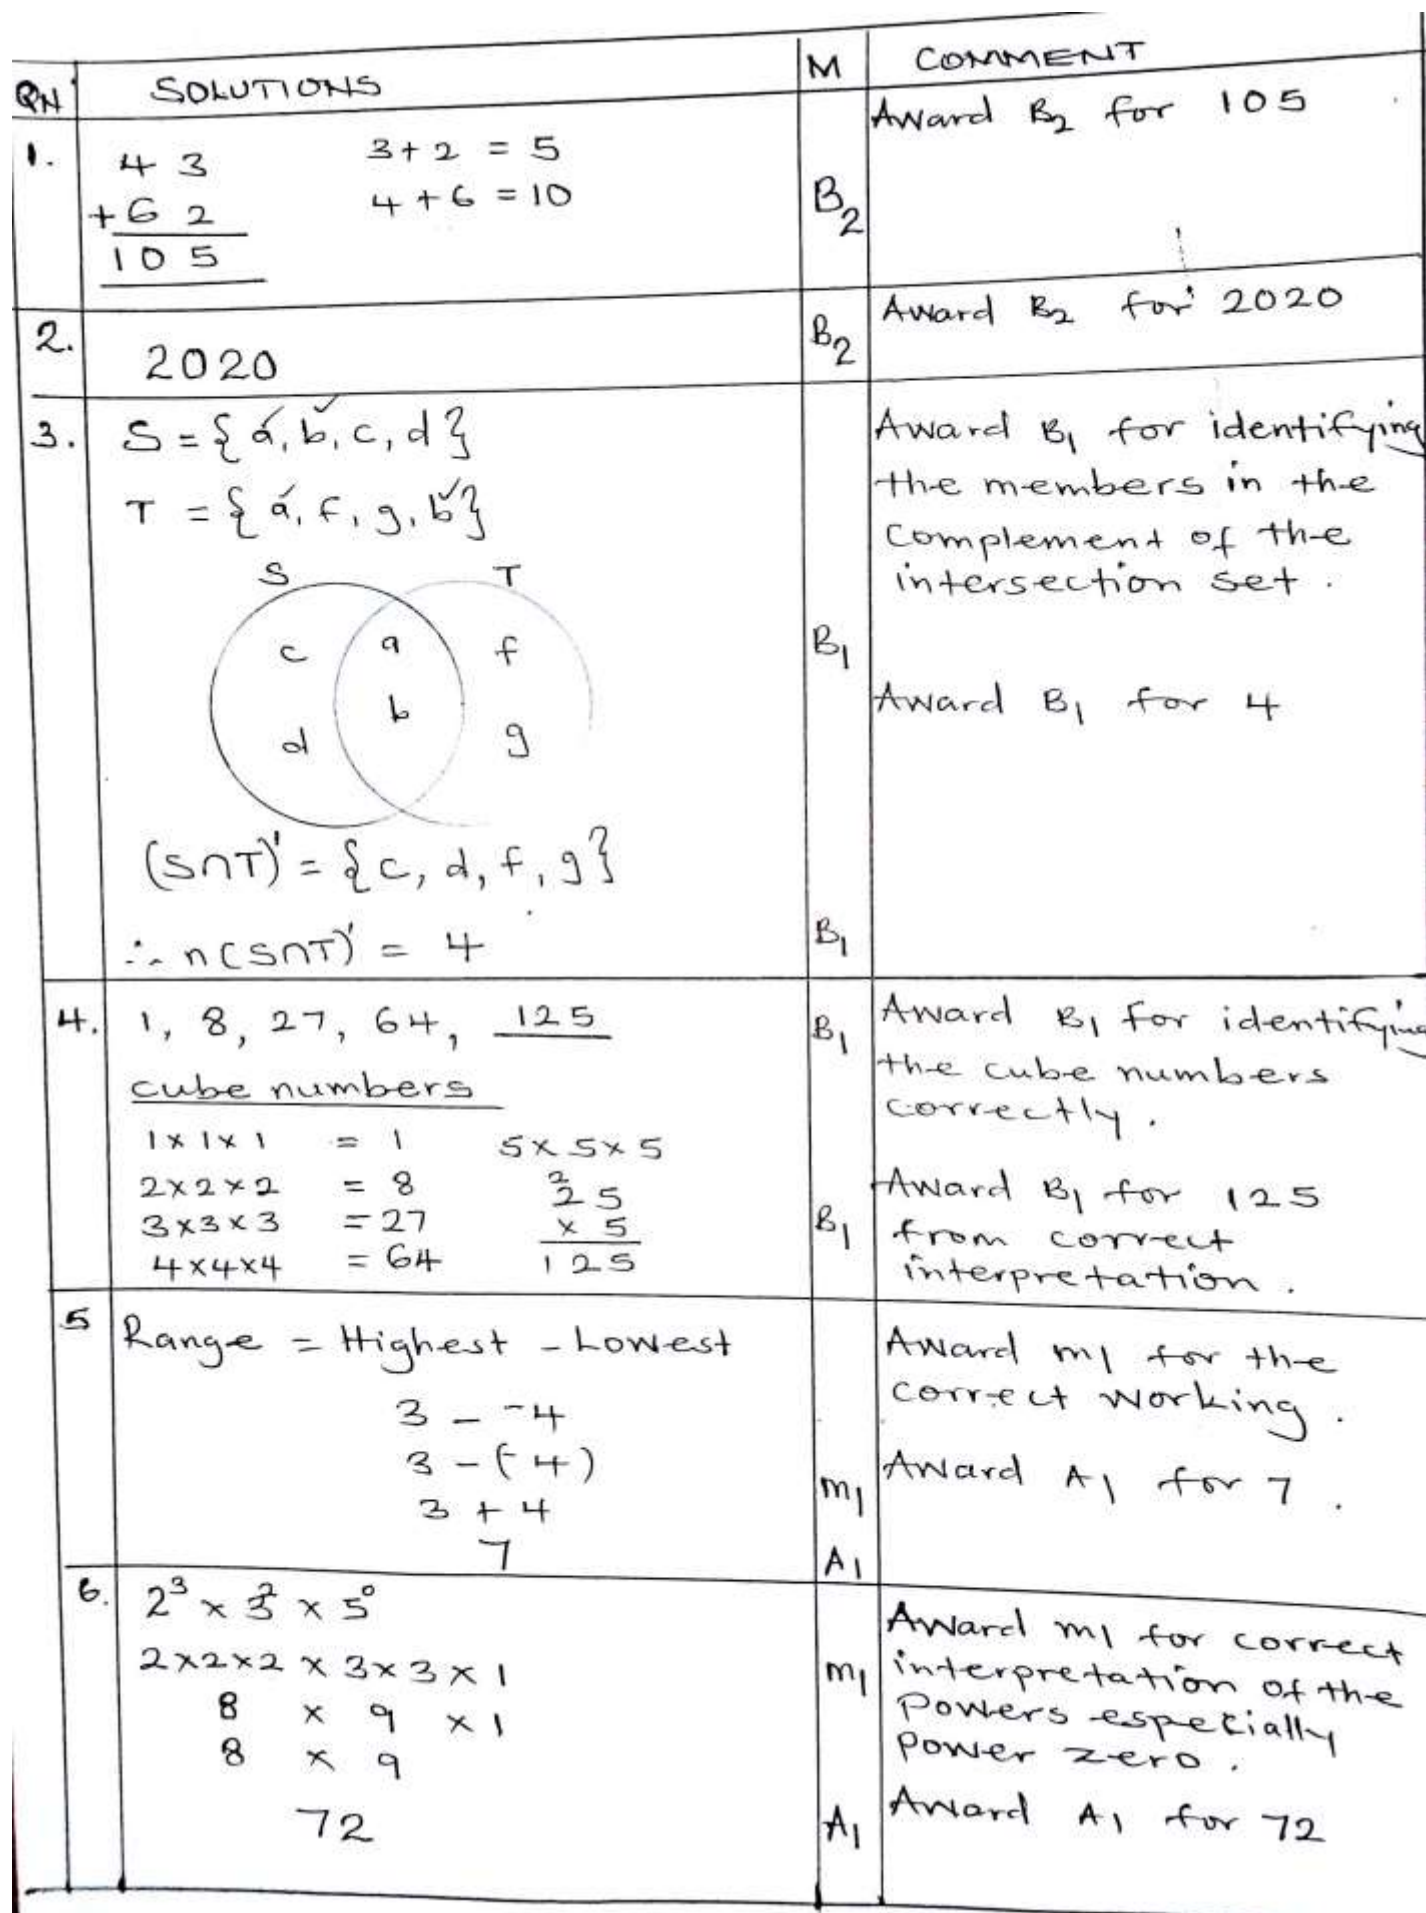 QN SOLUTIONS M COMMENT
1. 4 3 3 + 2 = 5 Award B2 for 105
+ 6 2 4 + 6 = 10 B2
1 0 5
2. 2020 B2 Award B2 for 2020
3. S = {a, b, c, d}
T = {a, f, g, b}
S T
c a f
b
d g
B1
(S∩T)' = {c, d, f, g}
∴ n(S∩T)' = 4 B1
Award B1 for identifying
the members in the
complement of the
intersection set.
Award B1 for 4
4. 1, 8, 27, 64, 125 B1
cube numbers
1 x 1 x 1 = 1 5 x 5 x 5
2 x 2 x 2 = 8 2
25
3 x 3 x 3 = 27 x 5 B1
4 x 4 x 4 = 64 125
Award B1 for identifying
the cube numbers
correctly.
Award B1 for 125
from correct
interpretation.
5 Range = Highest - Lowest
3 - -4
3 - (-4)
3 + 4 m1
7 A1
Award m1 for the
correct working.
Award A1 for 7.
6. 2³ x 3² x 5⁰
2x2x2 x 3x3x1 m1
8 x 9 x 1
8 x 9
72 A1
Award m1 for correct
interpretation of the
powers especially
power zero.
Award A1 for 72